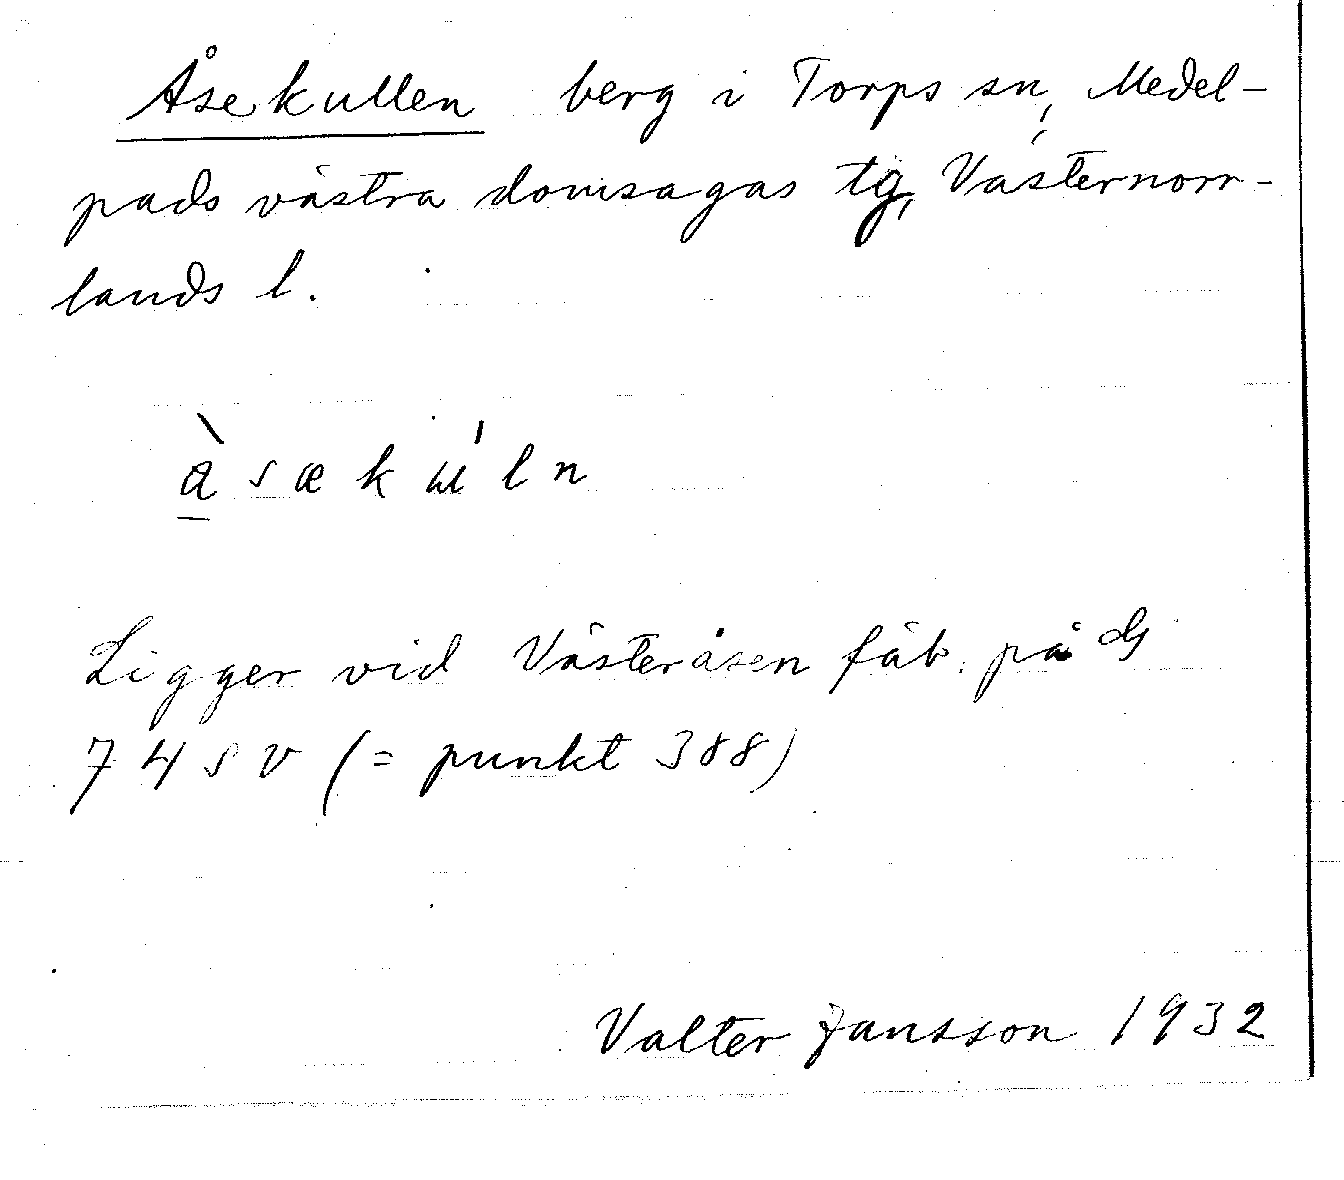 Åsekullen berg i Torps sn, Medel-
pads västra domsagas tg, Västernorr-
lands l.
à s æ k ú l n
Ligger vid Västeråsen fäb. på dg
74 SV (= punkt 388)
Valter Jansson 1932